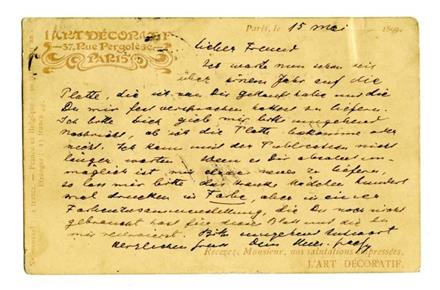 L'ART DÉCORATIF
37, Rue Pergolèse
PARIS
Paris, le 15 Mai 189
Lieber Freund
Ich warte nun schon seit
über einem Jahr auf die
Platte, die ich von Dir gekauft habe und die
Du mir fest versprochen hattest zu liefern.
Ich bitte Dich gieb mir bitte umgehend
Nachricht, ob ich die Platte bekomme oder
nicht. Ich kann mit der Publication nicht
länger warten. Wenn es Dir absolut un-
möglich ist mir eine neue zu liefern,
so lass mir bitte das Mädchen hundert
mal drucken in Farbe, aber in einer
Farbenzusammenstellung, die Du noch nicht
gebraucht hast für dieses Blatt und die Du
mir reservirst. Bitte umgehend Antwort
Herzlichen Gruss Dein
Recevez, Monsieur, nos salutations empressées.
L'ART DÉCORATIF.